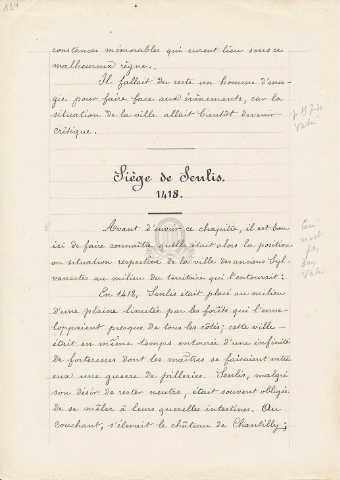 constances mémorables qui eurent lieu sous ce
malheureux règne.
Il fallait du reste un homme d'éner-
gie pour faire face aux évènements, car la
situation de la ville allait bientôt devenir
critique.
Siège de Senlis.
1418.
Avant d'ouvrir ce chapitre, il est bon
ici de faire connaître quelle était alors la position
ou situation respective de la ville des anciens Syl-
vanectes au milieu du territoire qui l'entourait:
En 1418, Senlis était placé au milieu
d'une plaine limitée par les forêts qui l'enve-
loppaient presque de tous les côtés; cette ville
était en même temps entourée d'une infinité
de forteresses dont les maîtres se faisaient entre
eux une guerre de pilleries. Senlis, malgré
son désir de rester neutre, était souvent obligée
de se mêler à leurs querelles intestines. Au
couchant, s'élevait le château de Chantilly;